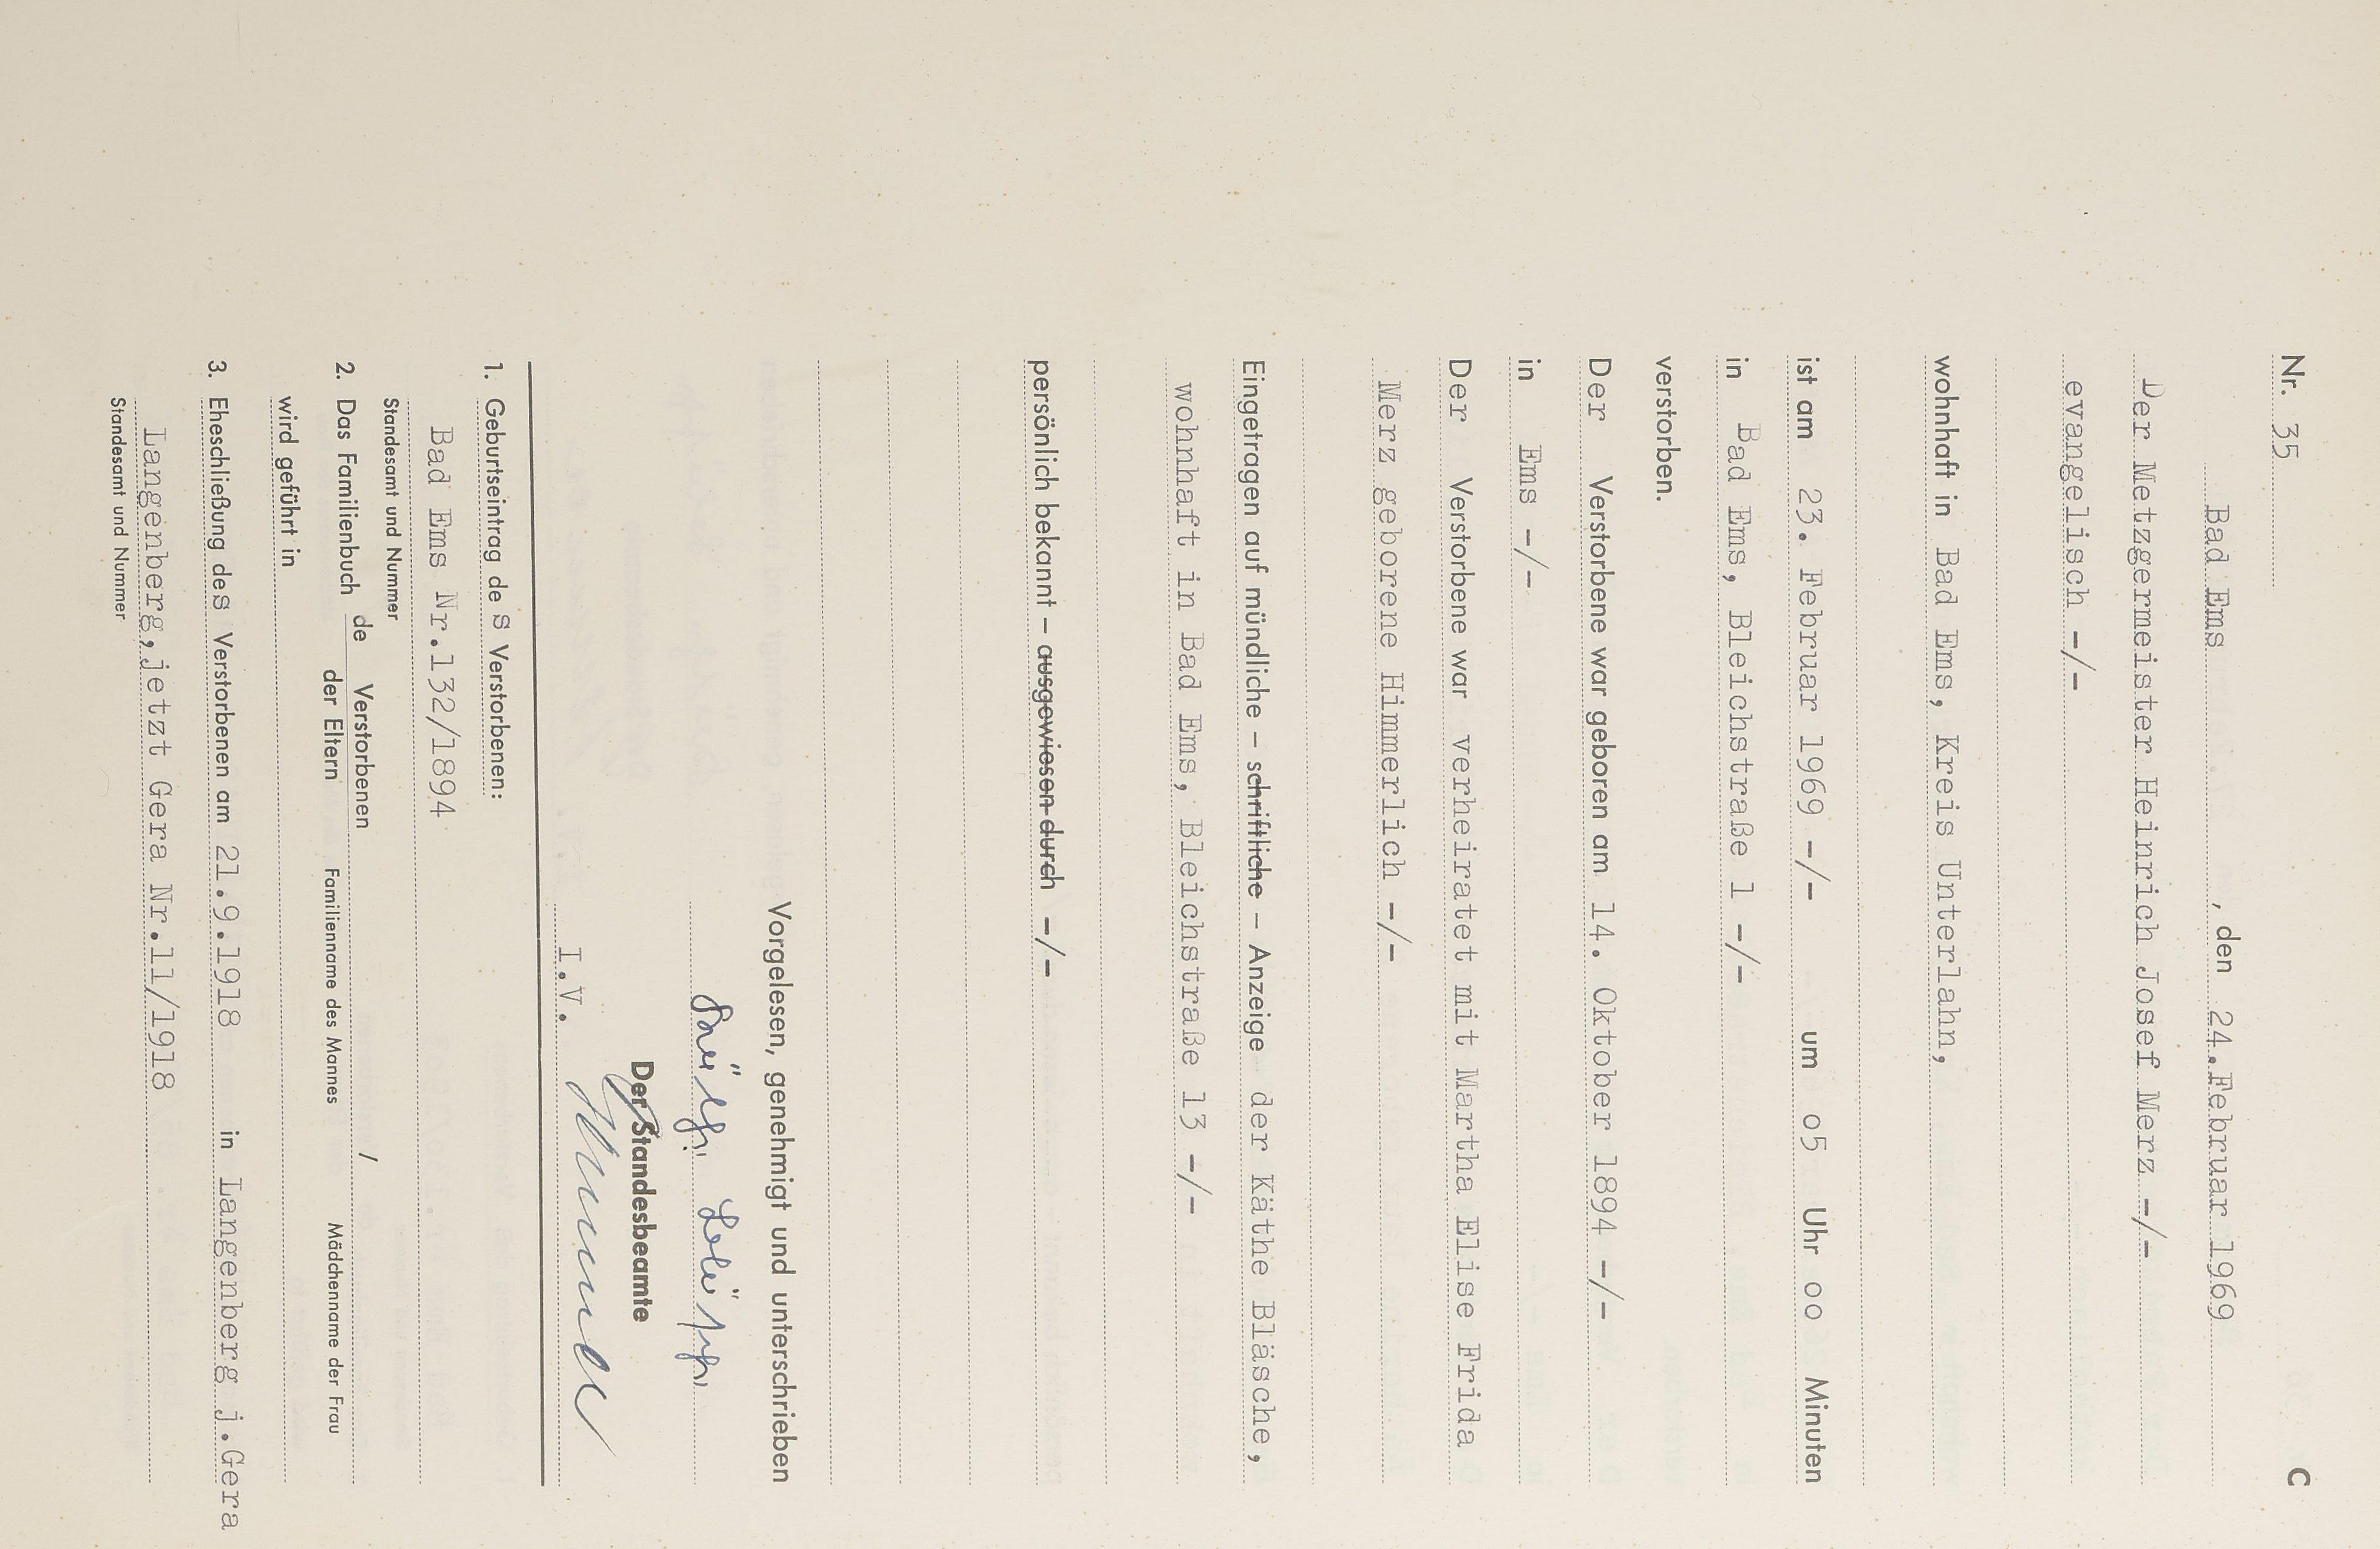 Nr. 35 C
Bad Ems , den 24.Februar 1969
Der Metzgermeister Heinrich Josef Merz -/-
evangelisch -/-
wohnhaft in Bad Ems, Kreis Unterlahn,
ist am 23. Februar 1969 -/- um o5 Uhr oo Minuten
in Bad Ems, Bleichstraße 1 -/-
verstorben.
Der Verstorbene war geboren am 14. Oktober 1894 -/-
in Ems -/-
Der Verstorbene war verheiratet mit Martha Elise Frida
Merz geborene Himmerlich -/-
Eingetragen auf mündliche – schriftliche – Anzeige der Käthe Bläsche,
wohnhaft in Bad Ems, Bleichstraße 13 -/-
persönlich bekannt – ausgewiesen durch -/-
Vorgelesen, genehmigt und unterschrieben
Der Standesbeamte
I.V.
1. Geburtseintrag des Verstorbenen:
Bad Ems Nr.132/1894
Standesamt und Nummer
2. Das Familienbuch de Verstorbenen /
der Eltern Familienname des Mannes Mädchenname der Frau
wird geführt in
3. Eheschließung des Verstorbenen am 21.9.1918 in Langenberg j.Gera
Langenberg,jetzt Gera Nr.11/1918
Standesamt und Nummer